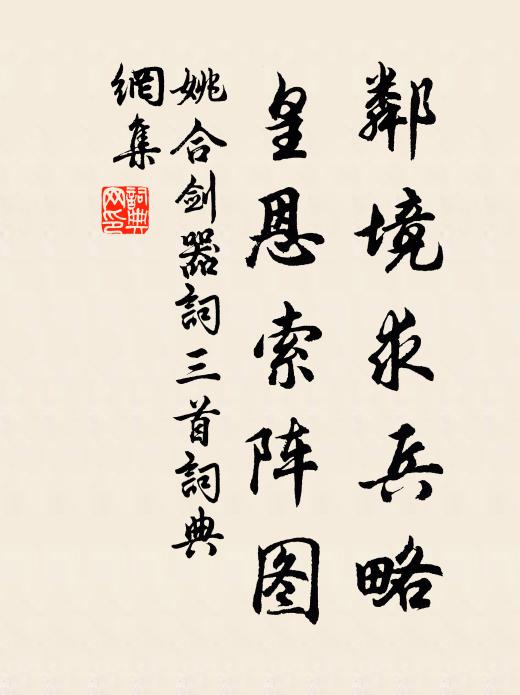 鄰境求兵略
皇恩索阵图
姚合剑器詞三首詞典
網集
詞典
网印